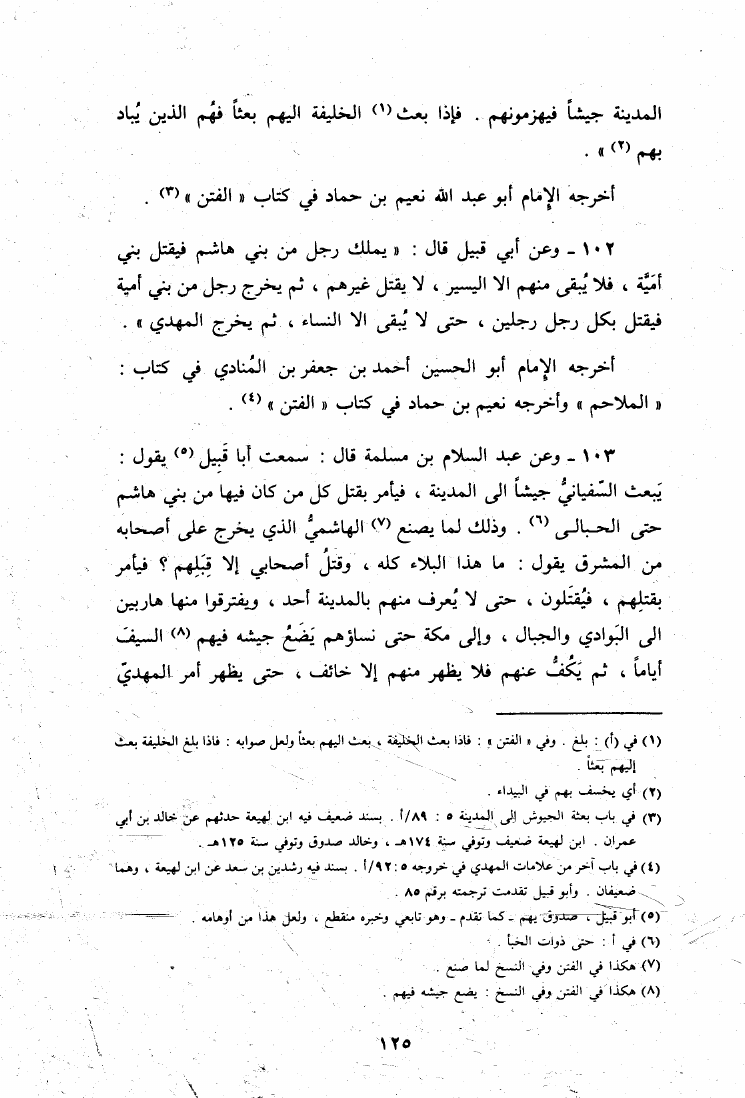 المدينة جيشاً فيهزمونهم . فإذا بعث (١) الخليفة اليهم بعثاً فهُم الذين يُباد
بهم (٢) » .
أخرجه الإمام أبو عبد الله نعيم بن حماد في كتاب « الفتن » (٣) .
١٠٢ ـ وعن أبي قبيل قال : « يملك رجل من بني هاشم فيقتل بني
أمَيَّة ، فلا يُبقى منهم الا اليسير ، لا يقتل غيرهم ، ثم يخرج رجل من بني أمية
فيقتل بكل رجل رجلين ، حتى لا يُبقى الا النساء ، ثم يخرج المهدي » .
أخرجه الإمام أبو الحسين أحمد بن جعفر بن المُنادي في كتاب :
« الملاحم » وأخرجه نعيم بن حماد في كتاب « الفتن » (٤) .
١٠٣ ـ وعن عبد السلام بن مسلمة قال : سمعت أبا قَبِيل (٥) يقول :
يَبعث السّفيانيُّ جيشاً الى المدينة ، فيأمر بقتل كل من كان فيها من بني هاشم
حتى الحبالى (٦) . وذلك لما يصنع (٧) الهاشميُّ الذي يخرج على أصحابه
من المشرق يقول : ما هذا البلاء كله ، وقتلُ أصحابي إلا قِبَلِهم ؟ فيأمر
بقتلهم ، فيُقتَلون ، حتى لا يُعرف منهم بالمدينة أحد ، ويفترقوا منها هاربين
الى البَوادي والجبال ، وإلى مكة حتى نساؤهم يَضَعُ جيشه فيهم (٨) السيفَ
أياماً ، ثم يَكُفُّ عنهم فلا يظهر منهم إلا خائف ، حتى يظهر أمر المهديّ
(١) في (أ) : بلغ . وفي « الفتن » : فاذا بعث الخليفة ، بعث اليهم بعثاً ولعل صوابه : فاذا بلغ الخليفة بعث
إليهم بعثاً .
(٢) أي يخسف بهم في البيداء .
(٣) في باب بعثة الجيوش إلى المدينة ٥ : ٨٩/أ . بسند ضعيف فيه ابن لهيعة حدثهم عن خالد بن أبي
عمران . ابن لهيعة ضعيف وتوفي سنة ١٧٤هـ ، وخالد صدوق وتوفي سنة ١٢٥هـ .
(٤) في باب آخر من علامات المهدي في خروجه ٥ : ٩٢/أ . بسند فيه رشدين بن سعد عن ابن لهيعة ، وهما
ضعيفان . وأبو قبيل تقدمت ترجمته برقم ٨٥ .
(٥) أبو قبيل ، صدوق يهم ـ كما تقدم ـ وهو تابعي وخبره منقطع ، ولعل هذا من أوهامه .
(٦) في أ : حتى ذوات الخبأ .
(٧) هكذا في الفتن وفي النسخ لما صنع .
(٨) هكذا في الفتن وفي النسخ : يضع جيشه فيهم .
١٢٥